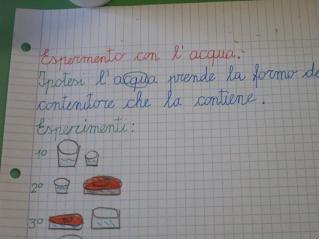 Esperimento con l'acqua.
Ipotesi l'acqua prende la forma de
contenitore che la contiene.
Esperimenti:
1º
2º
3º